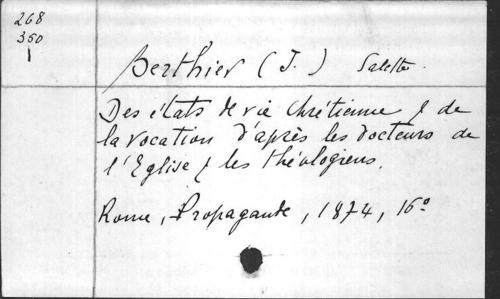 268
350
1
Berthier (J.) Salette.
Des états de vie chrétienne & de
la vocation d'après les docteurs de
l'Eglise & les théologiens.
Rome, Propagande, 1874, 16º